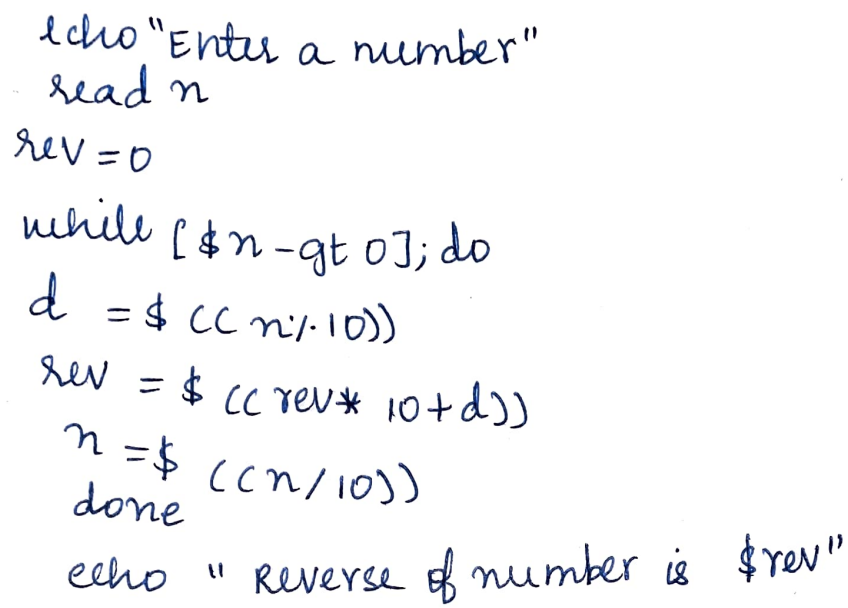 echo "Enter a number"
read n
rev = 0
while [ $n -gt 0 ]; do
d = $ (( n % 10 ))
rev = $ (( rev * 10 + d ))
n = $ (( n / 10 ))
done
echo " Reverse of number is $rev"